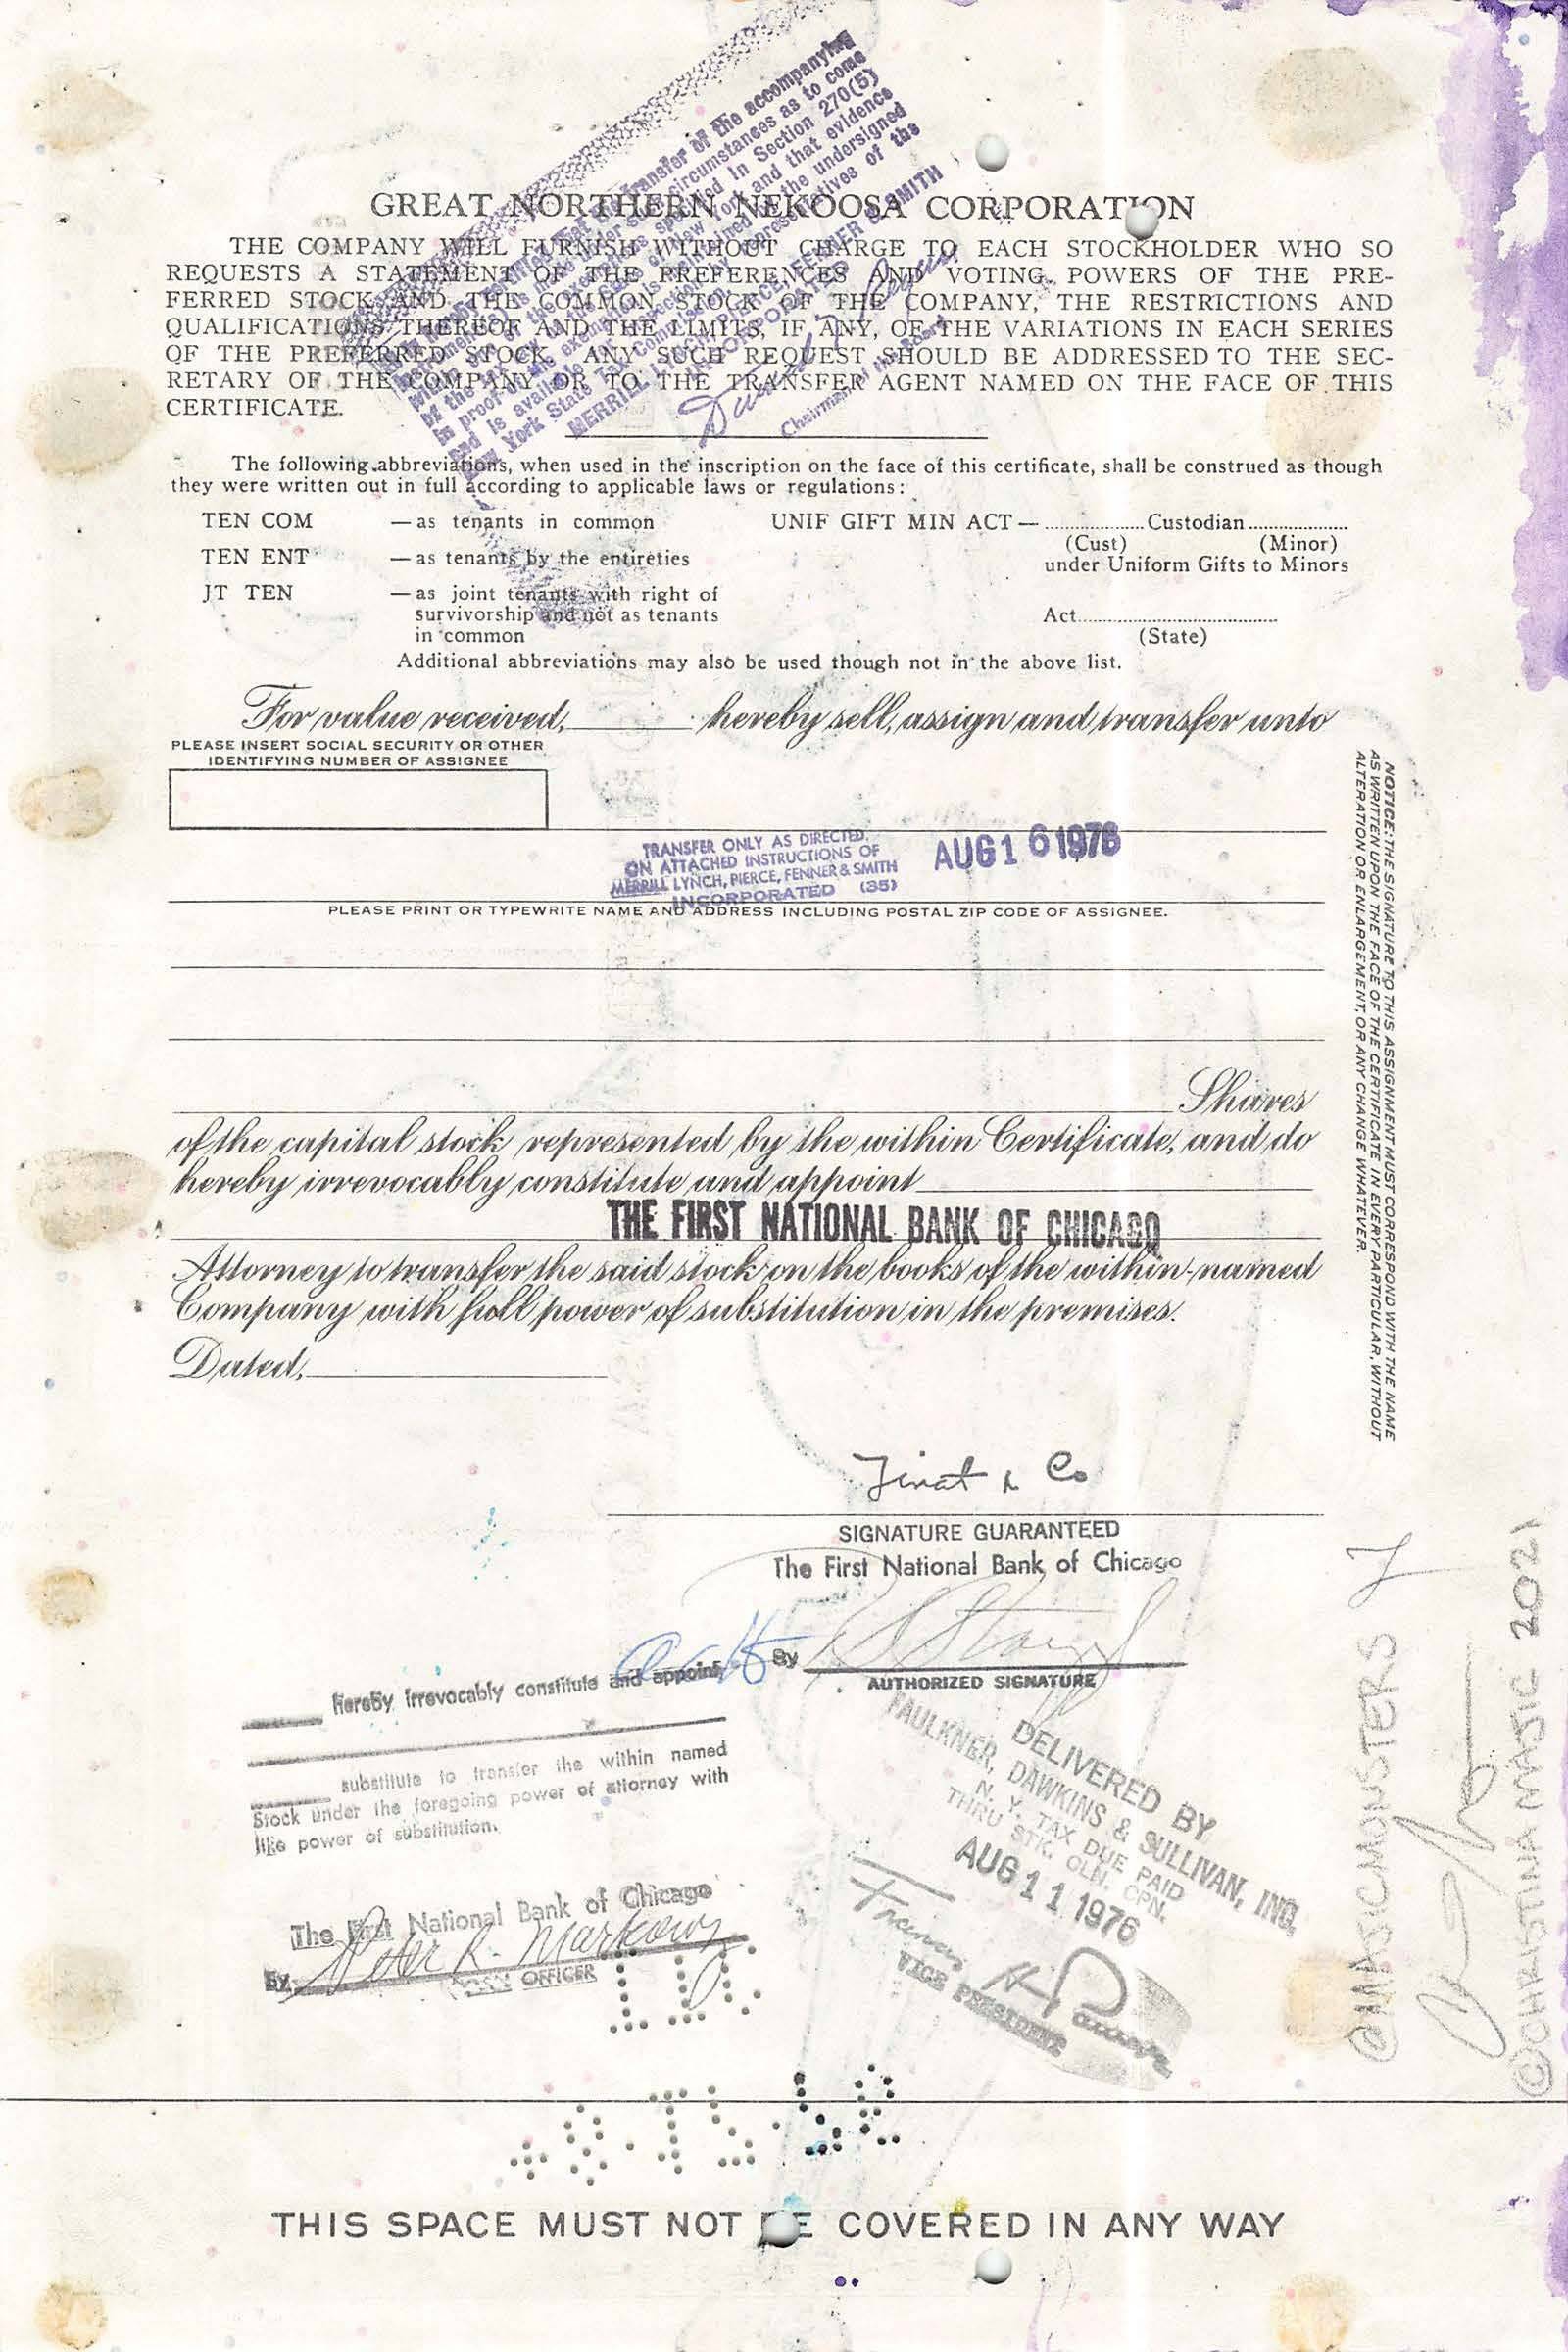 GREAT NORTHERN NEKOOSA CORPORATION
THE COMPANY WILL FURNISH WITHOUT CHARGE TO EACH STOCKHOLDER WHO SO
REQUESTS A STATEMENT OF THE PREFERENCES AND VOTING POWERS OF THE PRE-
FERRED STOCK AND THE COMMON STOCK OF THE COMPANY, THE RESTRICTIONS AND
QUALIFICATIONS THEREOF AND THE LIMITS, IF ANY, OF THE VARIATIONS IN EACH SERIES
OF THE PREFERRED STOCK. ANY SUCH REQUEST SHOULD BE ADDRESSED TO THE SEC-
RETARY OF THE COMPANY OR TO THE TRANSFER AGENT NAMED ON THE FACE OF THIS
CERTIFICATE.
transfer of the accompanying
circumstances as to come
specified in Section 270(5)
New York and that evidence
the undersigned
representatives of the
MERRILL LYNCH, PIERCE, FENNER & SMITH
INCORPORATED
Chairman of the Board
The following abbreviations, when used in the inscription on the face of this certificate, shall be construed as though
they were written out in full according to applicable laws or regulations:
TEN COM — as tenants in common UNIF GIFT MIN ACT — Custodian
(Cust) (Minor)
TEN ENT — as tenants by the entireties under Uniform Gifts to Minors
JT TEN — as joint tenants with right of
survivorship and not as tenants Act
in common (State)
Additional abbreviations may also be used though not in the above list.
For value received, hereby sell, assign and transfer unto
PLEASE INSERT SOCIAL SECURITY OR OTHER
IDENTIFYING NUMBER OF ASSIGNEE
TRANSFER ONLY AS DIRECTED
ON ATTACHED INSTRUCTIONS OF
MERRILL LYNCH, PIERCE, FENNER & SMITH
INCORPORATED (35)
AUG 16 1976
PLEASE PRINT OR TYPEWRITE NAME AND ADDRESS INCLUDING POSTAL ZIP CODE OF ASSIGNEE.
Shares
of the capital stock represented by the within Certificate, and do
hereby irrevocably constitute and appoint
THE FIRST NATIONAL BANK OF CHICAGO
Attorney to transfer the said stock on the books of the within-named
Company with full power of substitution in the premises.
Dated,
NOTICE: THE SIGNATURE TO THIS ASSIGNMENT MUST CORRESPOND WITH THE NAME
AS WRITTEN UPON THE FACE OF THE CERTIFICATE IN EVERY PARTICULAR, WITHOUT
ALTERATION OR ENLARGEMENT, OR ANY CHANGE WHATEVER.
Finat & Co
SIGNATURE GUARANTEED
The First National Bank of Chicago
By
AUTHORIZED SIGNATURE
hereby irrevocably constitute and appoint
substitute to transfer the within named
Stock under the foregoing power of attorney with
like power of substitution.
The First National Bank of Chicago
By Peter R. Markowy
OFFICER
DELIVERED BY
FAULKNER, DAWKINS & SULLIVAN, INC.
N. Y. TAX DUE PAID
THRU STK. CLN. CPN.
AUG 11 1976
VICE PRESIDENT
@MAJICMONSTERS
©CHRISTINA MAJIC 2021
THIS SPACE MUST NOT BE COVERED IN ANY WAY